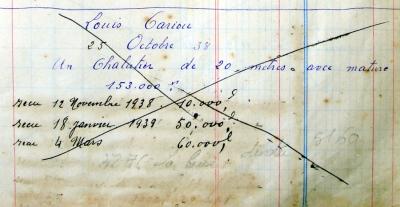 Louis Cariou
25 Octobre 38
Un Chalutier de 20 mètres avec mature
153.000
recu 12 Novembre 1938 40.000,
recu 18 janvier 1939 50.000,
recu 4 Mars 60.000,